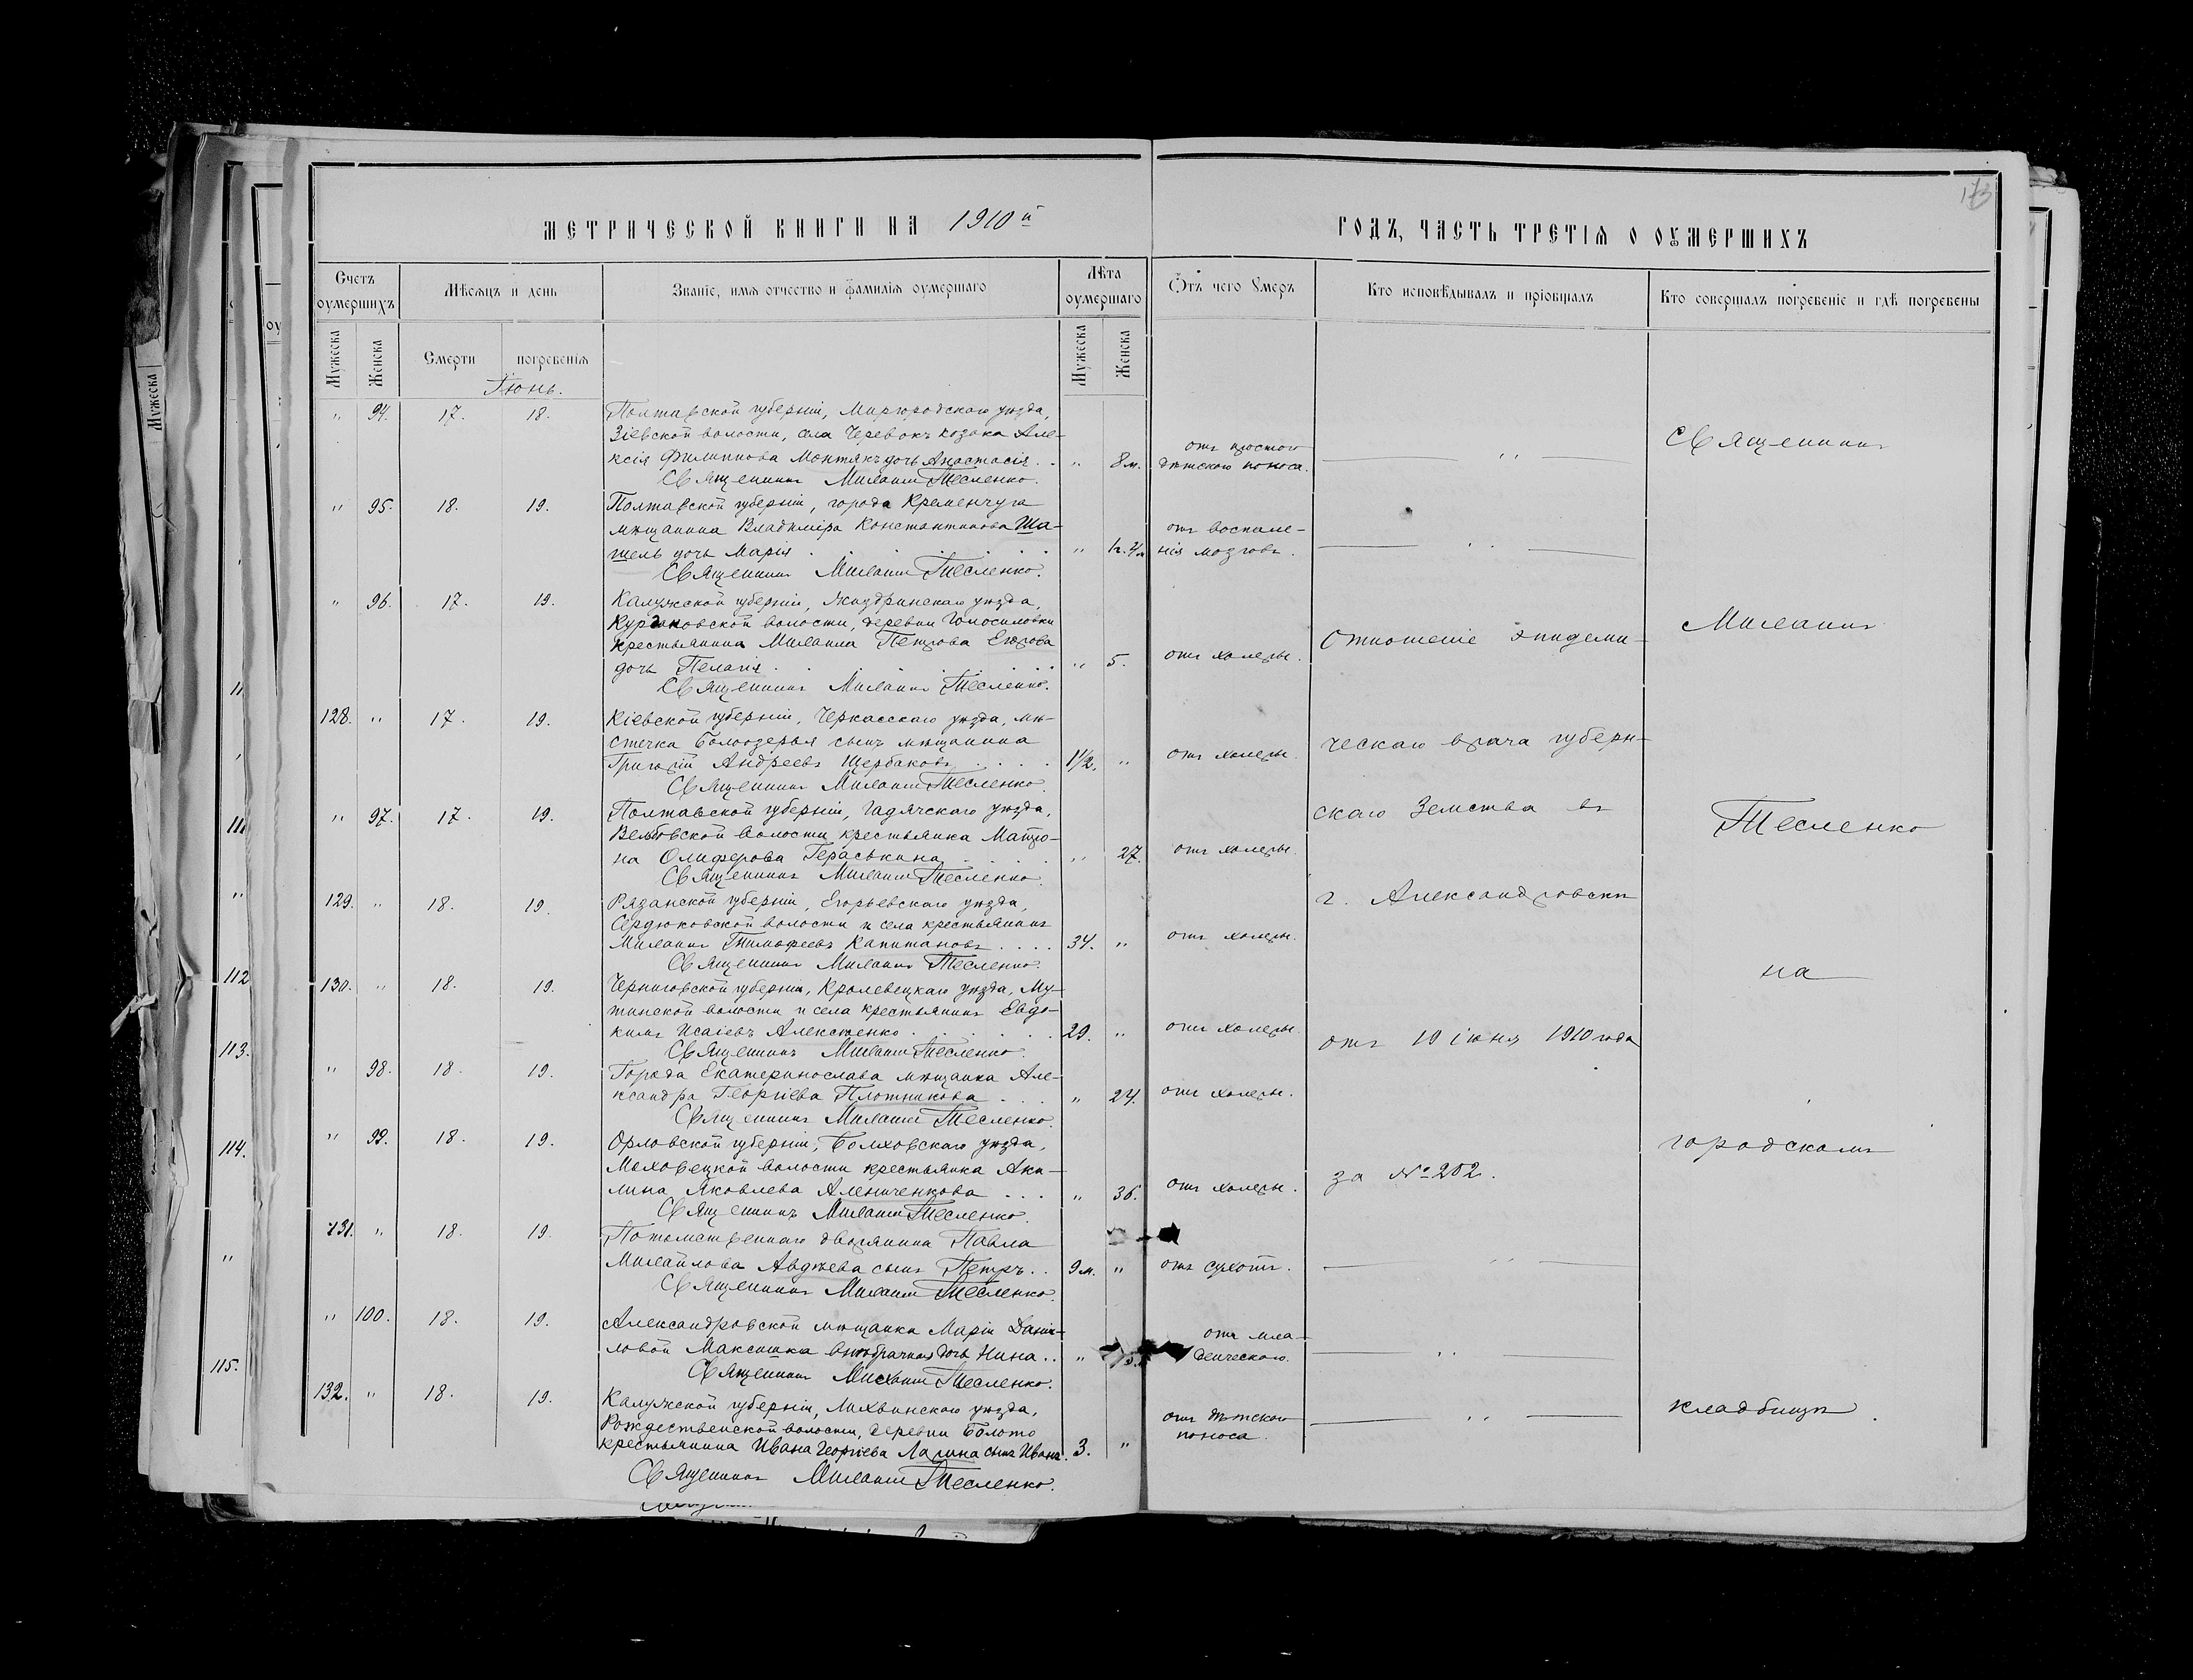 173
МЕТРИЧЕСКОЙ КНИГИ НА 1910й
ГОДЪ, ЧАСТЬ ТРЕТІЯ О ОУМЕРШИХЪ
Счетъ оумершихъ
Мѣсяцъ и день
Званіе, имя отчество и фамилія оумершаго
Лѣта оумершаго
Отъ чего умеръ
Кто исповѣдывалъ и пріобщалъ
Кто совершалъ погребеніе и гдѣ погребены
Мужеска
Женска
Смерти
погребенія
Мужеска
Женска
Іюнь.
" 94. 17. 18. Полтавской губерніи, Миргородскаго уѣзда,
Зіевской волости, села Черевокъ козака Але-
ксія Филиппова Моктякъ дочь Анастасія . . " 8 м. отъ простого дѣтскаго поноса.
Священникъ Михаилъ Тесленко.
" 95. 18. 19. Полтавской губерніи, города Кременчуга
мѣщанина Владиміра Константинова Ша-
шель дочь Марія " отъ воспале-
нія мозговъ.
Священникъ Михаилъ Тесленко.
" 96. 17. 19. Калужской губерніи, Жиздринскаго уѣзда,
волости, деревни
крестьянина Михаила Петрова Егорова
дочь Пелагія " 5. отъ холеры.
Священникъ Михаилъ Тесленко.
128. " 17. 19. Кіевской губерніи, Черкасскаго уѣзда, мѣ-
стечка Бѣлозерья сынъ мѣщанина
Григорій Андреевъ Щербаковъ 1½. " отъ холеры.
Священникъ Михаилъ Тесленко.
" 97. 17. 19. Полтавской губерніи, Гадячскаго уѣзда,
Вельбовской волости крестьянка Матро-
на Олиферова Гераськина " 27. отъ холеры.
Священникъ Михаилъ Тесленко.
129. " 18. 19. Рязанской губерніи, Егорьевскаго уѣзда,
Сердюковской волости и села крестьянинъ
Михаилъ Тимофеевъ Капитановъ . . . . 34. " отъ холеры.
Священникъ Михаилъ Тесленко.
130. " 18. 19. Черниговской губерніи, Кролевецкаго уѣзда, Му-
тинской волости и села крестьянинъ Евдо-
кимъ Исаіевъ Алексѣенко 29. " отъ холеры.
Священникъ Михаилъ Тесленко.
" 98. 18. 19. Города Екатеринослава мѣщанка Але-
ксандра Георгіева Плотникова " 24. отъ холеры.
Священникъ Михаилъ Тесленко.
" 99. 18. 19. Орловской губерніи, Болховскаго уѣзда,
Моховецкой волости крестьянка Аки-
лина Яковлева Алениченкова . . . " 36. отъ холеры.
Священникъ Михаилъ Тесленко.
131. " 18. 19. Потомственнаго дворянина Павла
Михайлова Авдѣева сынъ Петръ . . 9 м. " отъ сухотъ.
Священникъ Михаилъ Тесленко.
" 100. 18. 19. Александровской мѣщанки Маріи Дани-
ловой Максишка внѣбрачная дочь Нина . . " отъ мла-
денческаго.
Священникъ Михаилъ Тесленко.
132. " 18. 19. Калужской губерніи, Лихвинскаго уѣзда,
Рождественской волости, деревни Болото
крестьянина Ивана Георгіева Лагина сынъ Иванъ. 3. " отъ дѣтскаго
поноса.
Священникъ Михаилъ Тесленко.
Отношеніе эпидеми-
ческаго врача губерн-
скаго Земства въ
г. Александровскѣ
отъ 19 іюня 1910 года
за № 202.
Священникъ
Михаилъ
Тесленко
на
городскомъ
кладбищѣ.
112
113.
114.
115.